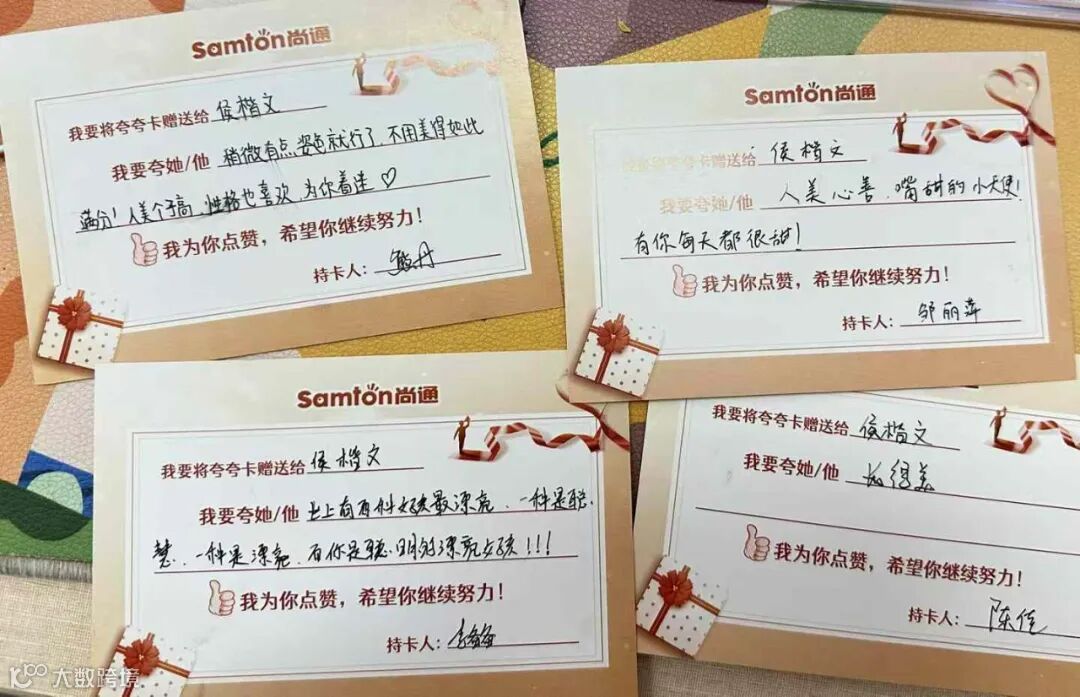 Samton尚通
我要将夸夸卡赠送给 侯楷文
我要夸她/他 稍微有点姿色就行了、不用美得如此
满分！人美个子高、性格也喜欢、为你着迷♡
我为你点赞，希望你继续努力！
持卡人：敏丹
Samton尚通
我要将夸夸卡赠送给 侯楷文
我要夸她/他 人美心善、嘴甜的小天使！
有你每天都很甜！
我为你点赞，希望你继续努力！
持卡人：邹丽萍
Samton尚通
我要将夸夸卡赠送给 侯楷文
我要夸她/他 世上有两种女孩最漂亮、一种是聪
慧、一种是漂亮、而你是聪明的漂亮女孩！！！
我为你点赞，希望你继续努力！
持卡人：
我要将夸夸卡赠送给 侯楷文
我要夸她/他 长得美
我为你点赞，希望你继续努力！
持卡人：陈佳
大数跨境